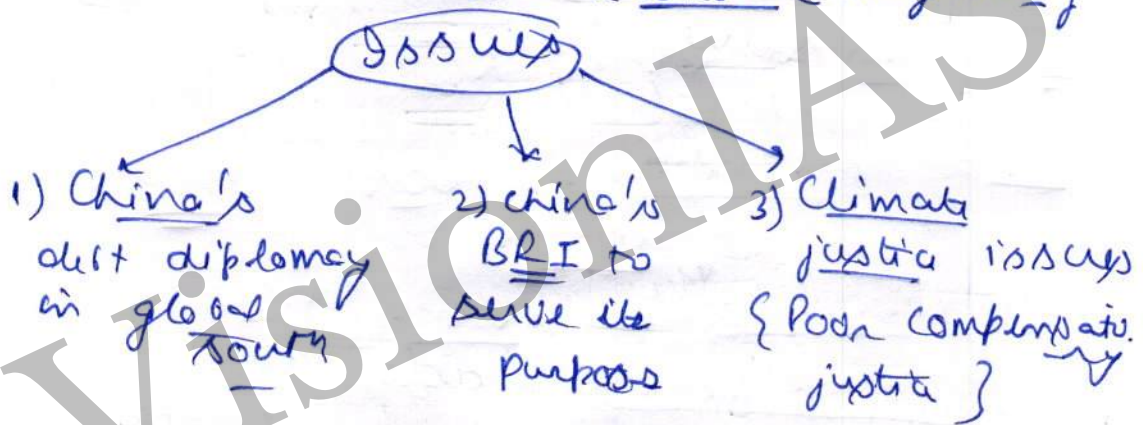 Issues
1) China's
debt diplomacy
in global
south
2) China's
BRI to
serve its
purpose
3) Climate
justice issues
{ Poor compensatory
justice }
VisionIAS